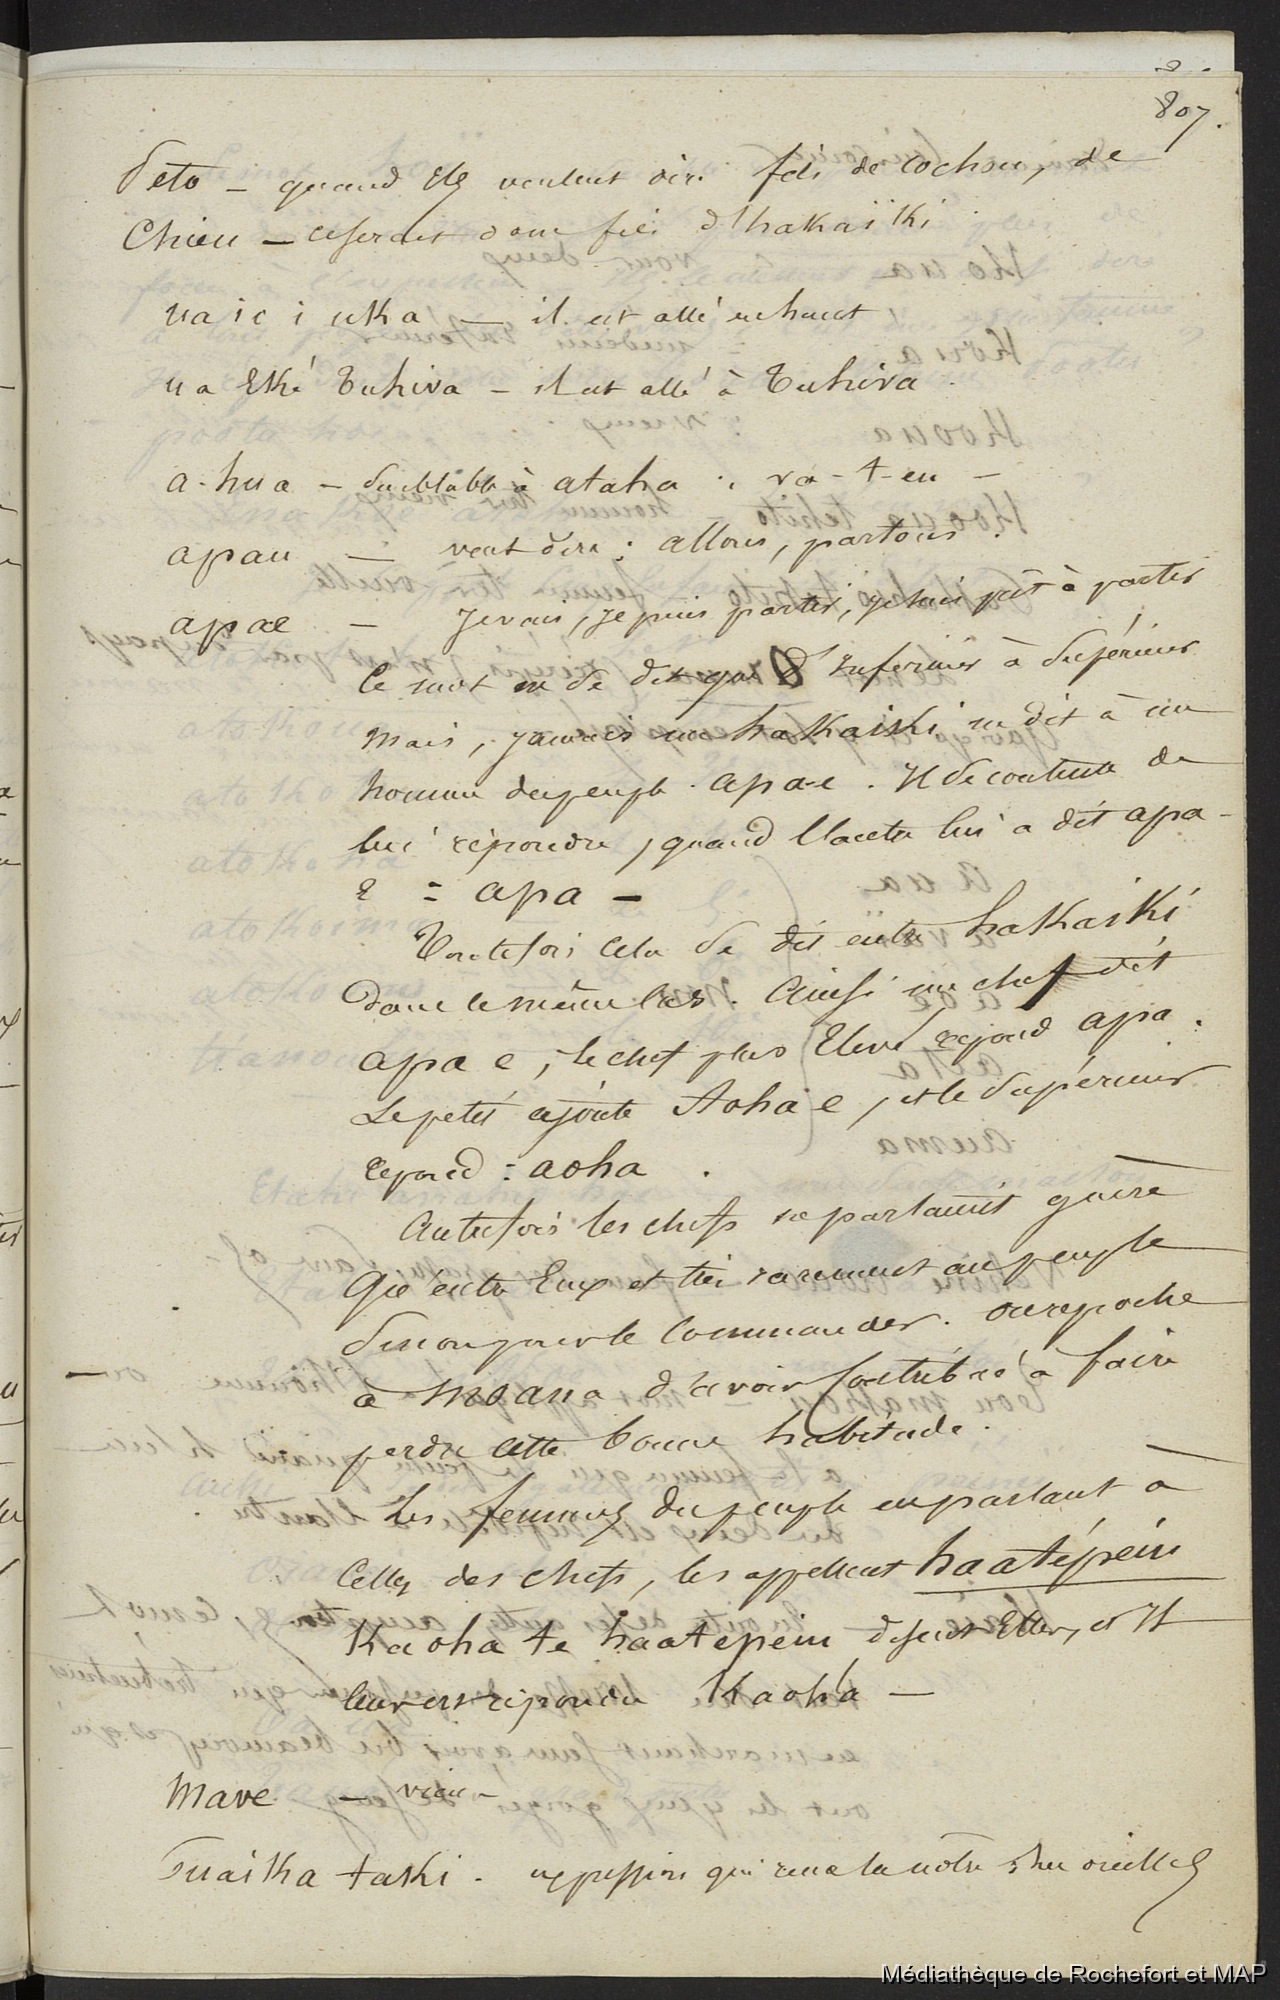 807.
Peto — quand ils veulent dire fils de cochon, de
Chien — ce serait donc fils d'hakaïki
ua ic i uka — il est allé en haut
ua Eké Tuhiva — il est allé à Tuhiva.
a-hua — semblable à ataha : va-t-en —
apau — veut dire : allons, partons.
apae — je vais, je puis partir, je suis prêt à partir
Ce mot ne se dit que d'inférieur à supérieur
mais, jamais un hakaiki ne dit à un
homme du peuple apa-e. Il se contente de
lui répondre, quand l'autre lui a dit apa-
e = apa —
Toutefois cela se dit entre hakaiki
dans le même cas. Ainsi un chef dit
apa e, le chef plus Elevé répond apa.
Le petit ajoute Aoha e, et le supérieur
répond : aoha.
Autrefois les chefs ne parlaient guère
qu'entre Eux et très rarement au peuple
sinon pour le commander. on reproche
à moana d'avoir contribué à faire
perdre cette bonne habitude.
Les femmes du peuple en parlant à
Celles des chefs, les appellent haatépéiu
Kaoha te haatepeiu disent Elles, et Il
leur est répondu Kaoha —
Mave — viens —
Tuaika taki. expression qui rend la nôtre : les oreilles
Médiathèque de Rochefort et MAP